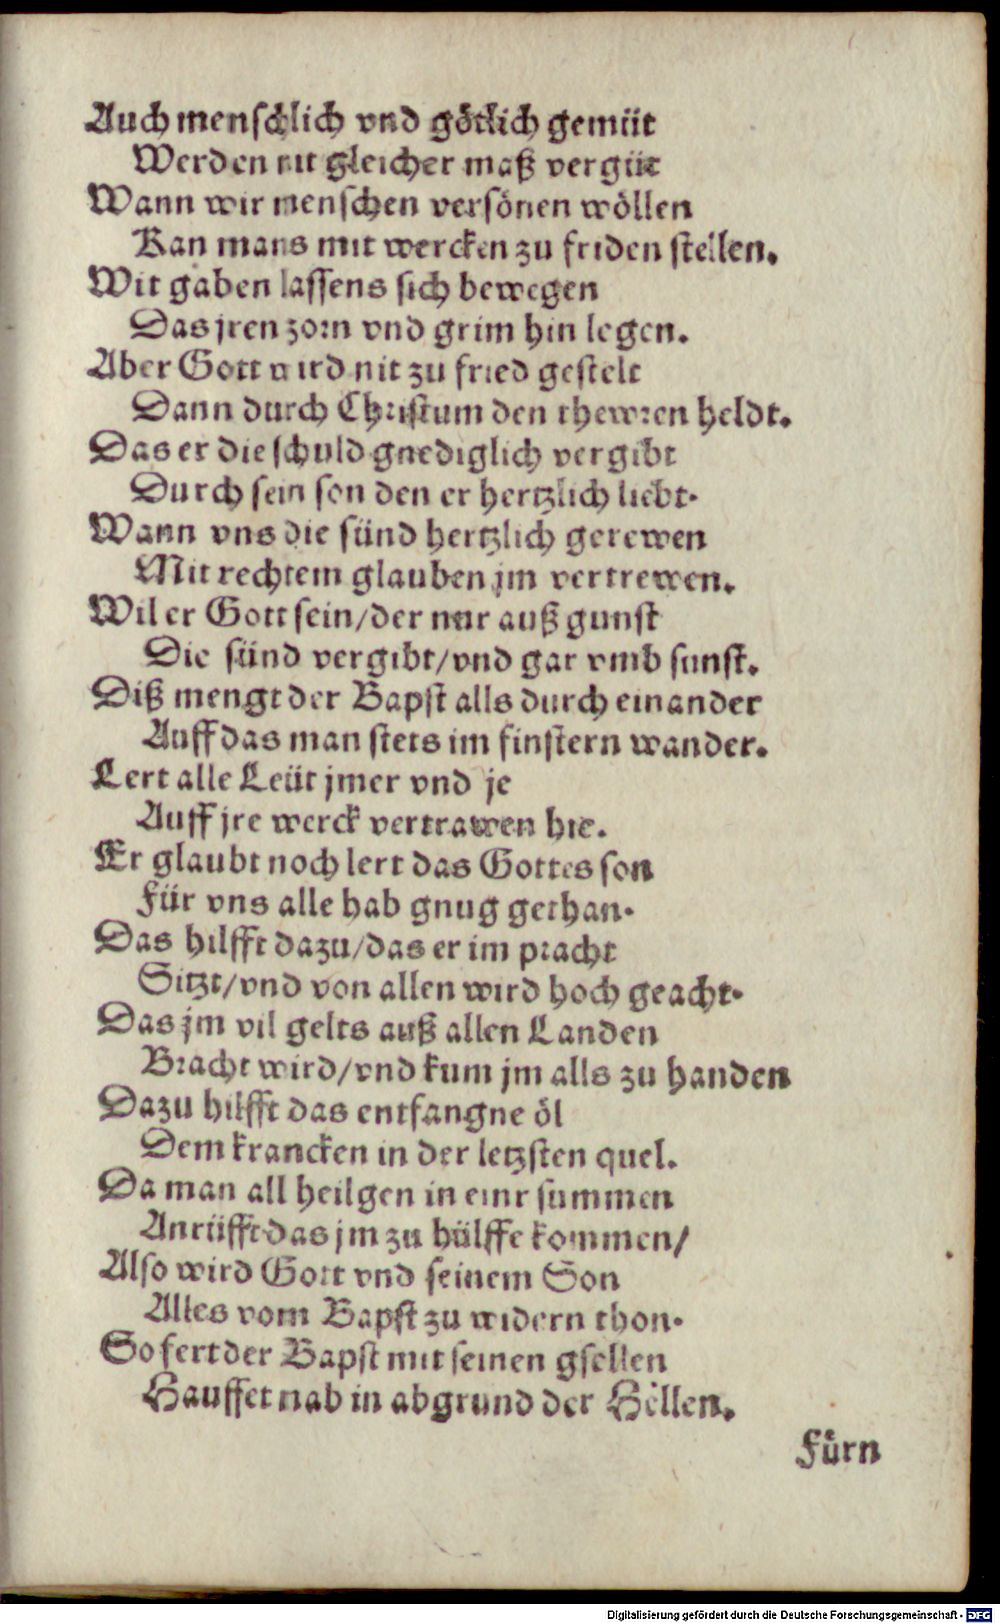 Auch menschlich vnd götlich gemüt
Werden nit gleicher maß vergüt
Wann wir menschen versönen wöllen
Kan mans mit wercken zu friden stellen.
Mit gaben lassens sich bewegen
Das jren zorn vnd grim hin legen.
Aber Gott wird nit zu fried gestelt
Dann durch Christum den thewren heldt.
Das er die schuld gnediglich vergibt
Durch sein son den er hertzlich liebt.
Wann vns die sünd hertzlich gerewen
Mit rechtem glauben jm vertrewen.
Wil er Gott sein/der nur auß gunst
Die sünd vergibt/vnd gar vmb sunst.
Diß mengt der Bapst alls durch einander
Auff das man stets im finstern wander.
Lert alle Leüt jmer vnd je
Auff jre werck vertrawen hie.
Er glaubt noch lert das Gottes son
Für vns alle hab gnug gethan.
Das hilfft dazu/das er im pracht
Sitzt/vnd von allen wird hoch geacht.
Das jm vil gelts auß allen Landen
Bracht wird/vnd kum jm alls zu handen
Dazu hilfft das entfangne öl
Dem krancken in der letzsten quel.
Da man all heilgen in einr summen
Anrüfft das jm zu hülffe kommen/
Also wird Gott vnd seinem Son
Alles vom Bapst zu widern thon.
So fert der Bapst mit seinen gsellen
Hauffet nab in abgrund der Hellen.
Fürn
Digitalisierung gefördert durch die Deutsche Forschungsgemeinschaft - DFG